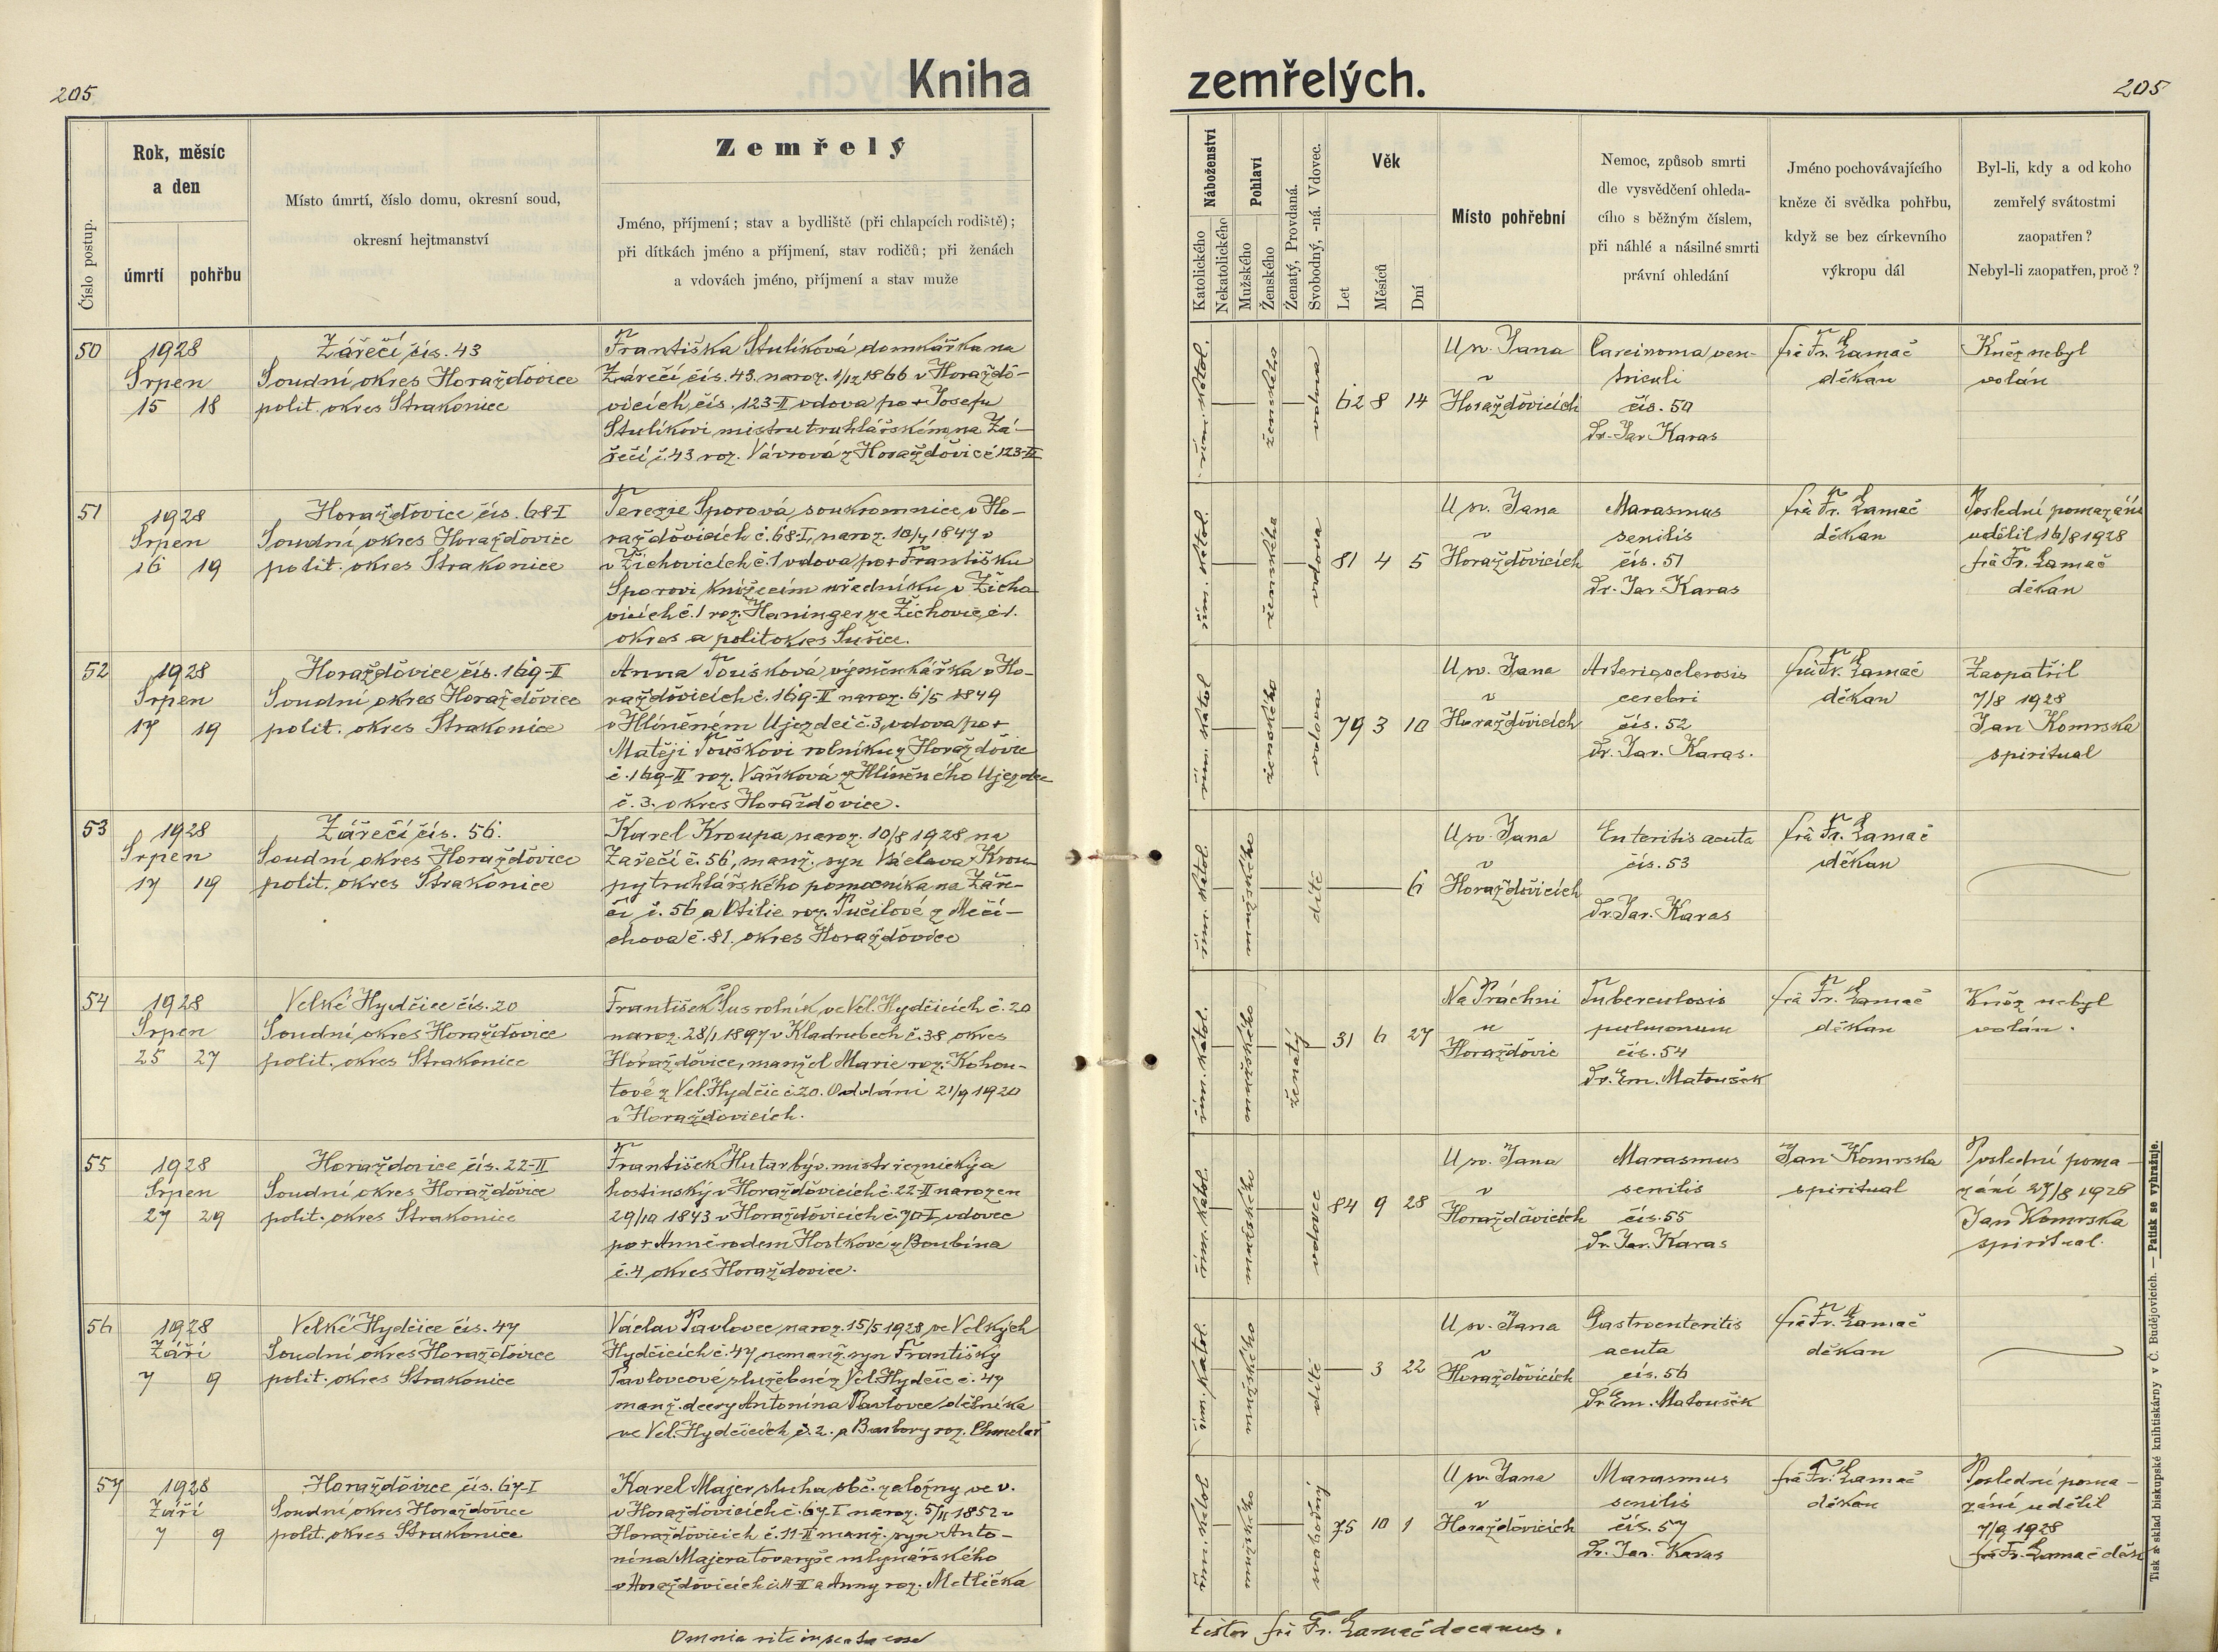 205
Kniha
zemřelých.
205
Číslo postup.
Rok, měsíc
a den
úmrtí
pohřbu
Místo úmrtí, číslo domu, okresní soud,
okresní hejtmanství
Zemřelý
Jméno, příjmení; stav a bydliště (při chlapcích rodiště);
při dítkách jméno a příjmení, stav rodičů; při ženách
a vdovách jméno, příjmení a stav muže
Náboženství
Katolického
Nekatolického
Pohlaví
Mužského
Ženského
Ženatý, Provdaná.
Svobodný, -ná. Vdovec.
Věk
Let
Měsíců
Dní
Místo pohřební
Nemoc, způsob smrti
dle vysvědčení ohleda-
cího s běžným číslem,
při náhlé a násilné smrti
právní ohledání
Jméno pochovávajícího
kněze či svědka pohřbu,
když se bez církevního
výkropu dál
Byl-li, kdy a od koho
zemřelý svátostmi
zaopatřen?
Nebyl-li zaopatřen, proč?
50
1928
Srpen
15 18
Zářečí čís. 43
Soudní okres Horažďovice
polit. okres Strakonice
Františka Stulíková domkářka na
Zářečí čís. 43. naroz. 1/12 1866 v Horaždo-
vicích čís. 123-II vdova po + Josefu
Stulíkovi mistru truhlářském na Zá-
řečí č. 43 roz. Vávrová z Horažďovic č 123-II
řím. katol.
ženského
vdova
62 8 14
U sv. Jana
v
Horažďovicích
Carcinoma ven-
triculi
čís. 50
Dr. Jar Karas
frà Fr. Lamač
děkan
Kněz nebyl
volán
51
1928
Srpen
16 19
Horažďovice čís. 68-I
Soudní okres Horažďovice
polit. okres Strakonice
Terezie Sporová soukromnice v Ho-
ražďovicích č. 68-I, naroz. 10/4 1847 v
v Žichovicích č. 1 vdova po + Františku
Sporovi knížecím úředníku v Žicho
vicích č. 1 roz. Haninger ze Žichovic č 1.
okres a polit okres Sušice.
řím. katol.
ženského
vdova
81 4 5
U sv. Jana
v
Horažďovicích
Marasmus
senilis
čís. 51
Dr. Jar. Karas
frà Fr. Lamač
děkan
Poslední pomazání
udělil 16/8 1928
frà Fr. Lamač
děkan
52
1928
Srpen
17 19
Horažďovice čís. 169-II
Soudní okres Horažďovice
polit. okres Strakonice
Anna Toušková, výměnkářka v Ho-
ražďovicích č. 169-II naroz. 6/5 1849
v Hlíněném Ujezdci č 3, vdova po +
Matěji Touškovi rolníku z Horažďovic
č. 169-II roz. Vaňková z Hlíněného Ujezdce
č. 3. okres Horažďovice.
řím. katol
ženského
vdova
79 3 10
U sv. Jana
v
Horažďovicích
Arteriosclerosis
cerebri
čís. 52
Dr. Jar. Karas.
frà Fr. Lamač
děkan
Zaopatřil
7/8 1928
Jan Komrska
spiritual
53
1928
Srpen
17 19
Zářečí čís. 56.
Soudní okres Horažďovice
polit. okres Strakonice
Karel Kroupa naroz. 10/8 1928 na
Zářečí č. 56, manž. syn Václava Krou
py truhlářského pomocníka na Záře-
čí č. 56 a Otilie roz. Tučilové z Mečí-
chova č. 81. okres Horažďovice
řím. katol.
mužského
dítě
6
U sv. Jana
v
Horažďovicích
Enteritis acuta
čís. 53
Dr. Jar. Karas
frà Fr. Lamač
děkan
54
1928
Srpen
25 27
Velké Hydčice čís. 20
Soudní okres Horažďovice
polit. okres Strakonice
František Šus rolník ve Vel. Hydčicích č. 20
naroz. 28/1 1897 v Kladrubech č. 38 okres
Horažďovice, manžel Marie roz. Kohou-
tové z Vel. Hydčic č 20. Oddáni 21/9 1920
v Horažďovicích.
řím. katol.
mužského
ženatý
31 6 27
Na Práchni
u
Horažďovic
Tuberculosis
pulmonum
čís. 54
Dr. Em. Matoušek
frà Fr. Lamač
děkan
Kněz nebyl
volán.
55
1928
Srpen
27 29
Horažďovice čís. 22-II
Soudní okres Horažďovice
polit. okres Strakonice
František Hutar býv. mistr řeznický a
hostinský v Horažďovicích č. 22-II narozen
29/10 1843 v Horažďovicích č. 70-I, vdovec
po + Anně rodem Hostkové z Boubína
č. 4 okres Horažďovice.
řím. katol.
mužského
vdovec
84 9 28
U sv. Jana
v
Horažďovicích
Marasmus
senilis
čís. 55
Dr. Jar. Karas
Jan Komrska
spiritual
Poslední poma-
zání 27/8 1928
Jan Komrska
spiritual.
56
1928
Září
7 9
Velké Hydčice čís. 47
Soudní okres Horažďovice
polit. okres Strakonice
Václav Pavlovec naroz. 15/5 1928 ve Velkých
Hydčicích č. 47 nemanž. syn Františky
Pavlovcové služebné z Vel. Hydčic č. 47
manž. dcery Antonína Pavlovce dělníka
ve Vel. Hydčicích č. 2. a Barbory roz. Chmelař
řím. katol.
mužského
dítě
3 22
U sv. Jana
v
Horažďovicích
Gastroenteritis
acuta
čís. 56
Dr Em. Matoušek
frà Fr. Lamač
děkan
57
1928
Září
7 9
Horažďovice čís. 67-I
Soudní okres Horažďovice
polit. okres Strakonice
Karel Majer sluha obč. záložny ve v.
v Horažďovicích č. 67-I naroz. 5/11 1852 v
Horažďovicích č. 11-II manž. syn Anto-
nína Majera tovaryše mlynářského
v Horažďovicích č. 11-II a Anny roz. Metlička
řím. katol
mužského
svobodný
75 10 1
U sv. Jana
v
Horažďovicích
Marasmus
senilis
čís. 57
Dr. Jar. Karas
frà Fr. Lamač
děkan
Poslední poma-
zání udělil
7/9 1928
frà Fr. Lamač děk
Omnia rite esse
testor frà Fr. Lamač decanus.
Tisk a sklad biskupské knihtiskárny v Č. Budějovicích. — Patisk se vyhražuje.